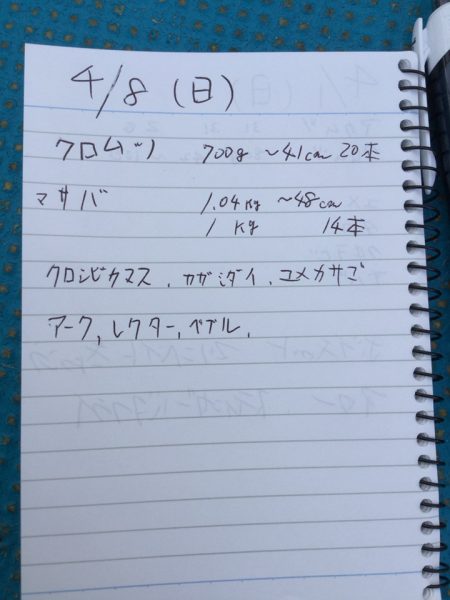 4/8(日)
クロムツ 700g ~41cm 20本
マサバ 1.04Kg ~48cm
1Kg 14本
クロシビカマス、カガミダイ、ユメカサゴ
アーク,レクター,ペブル,